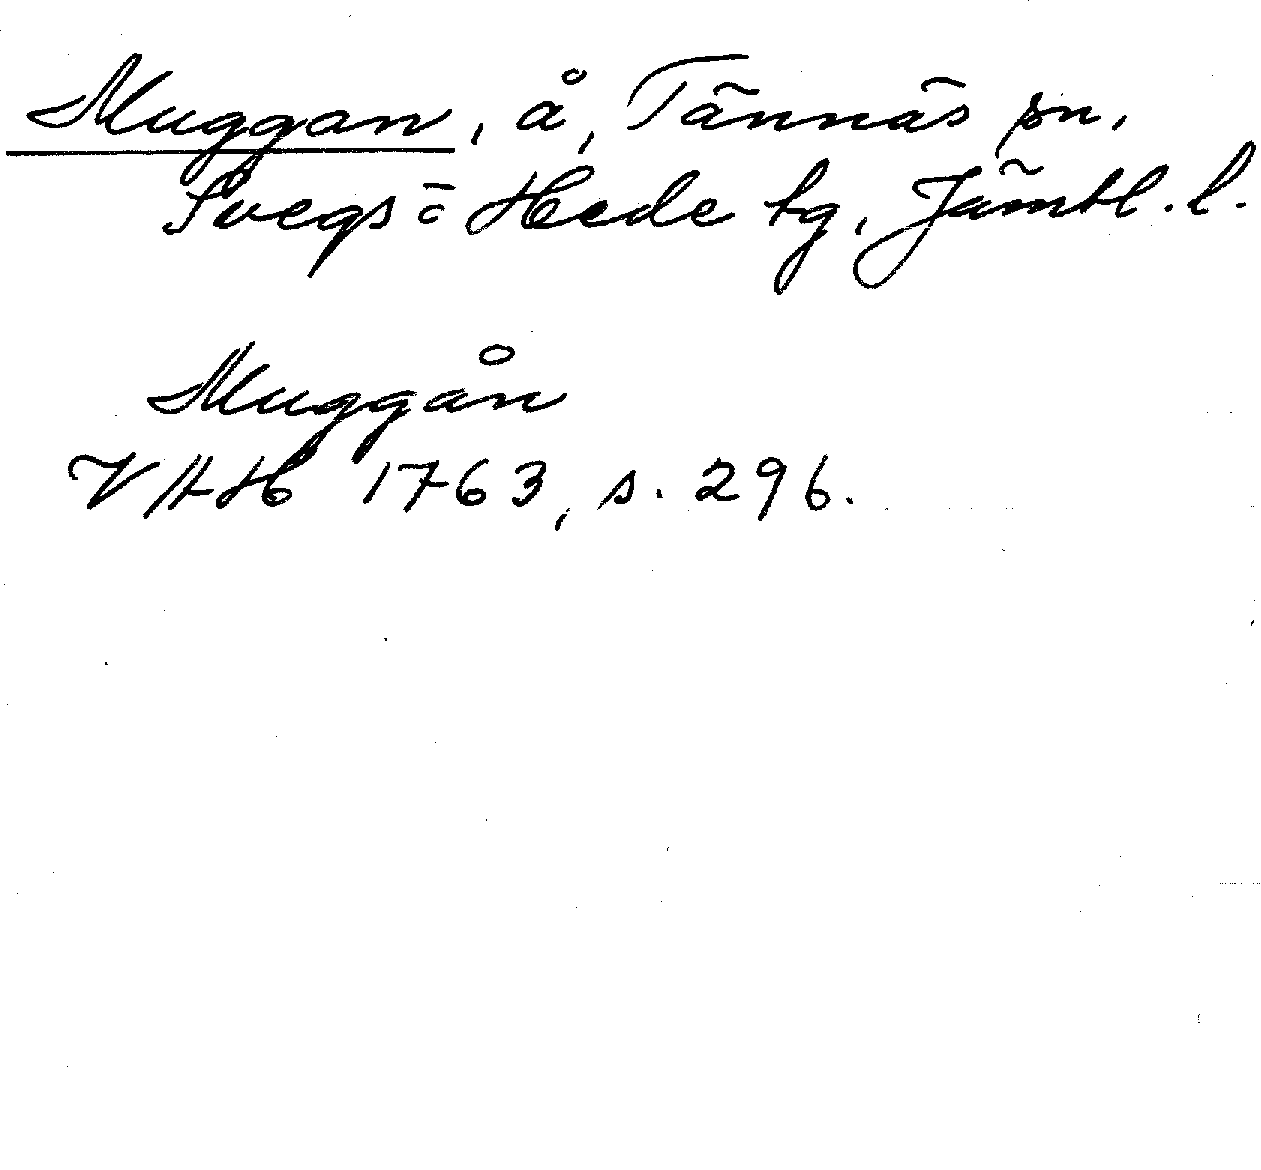 Muggan, å, Tännäs sn,
Svegs o Hede tg, Jämtl. l.
Muggån
VAH 1763, s. 296.